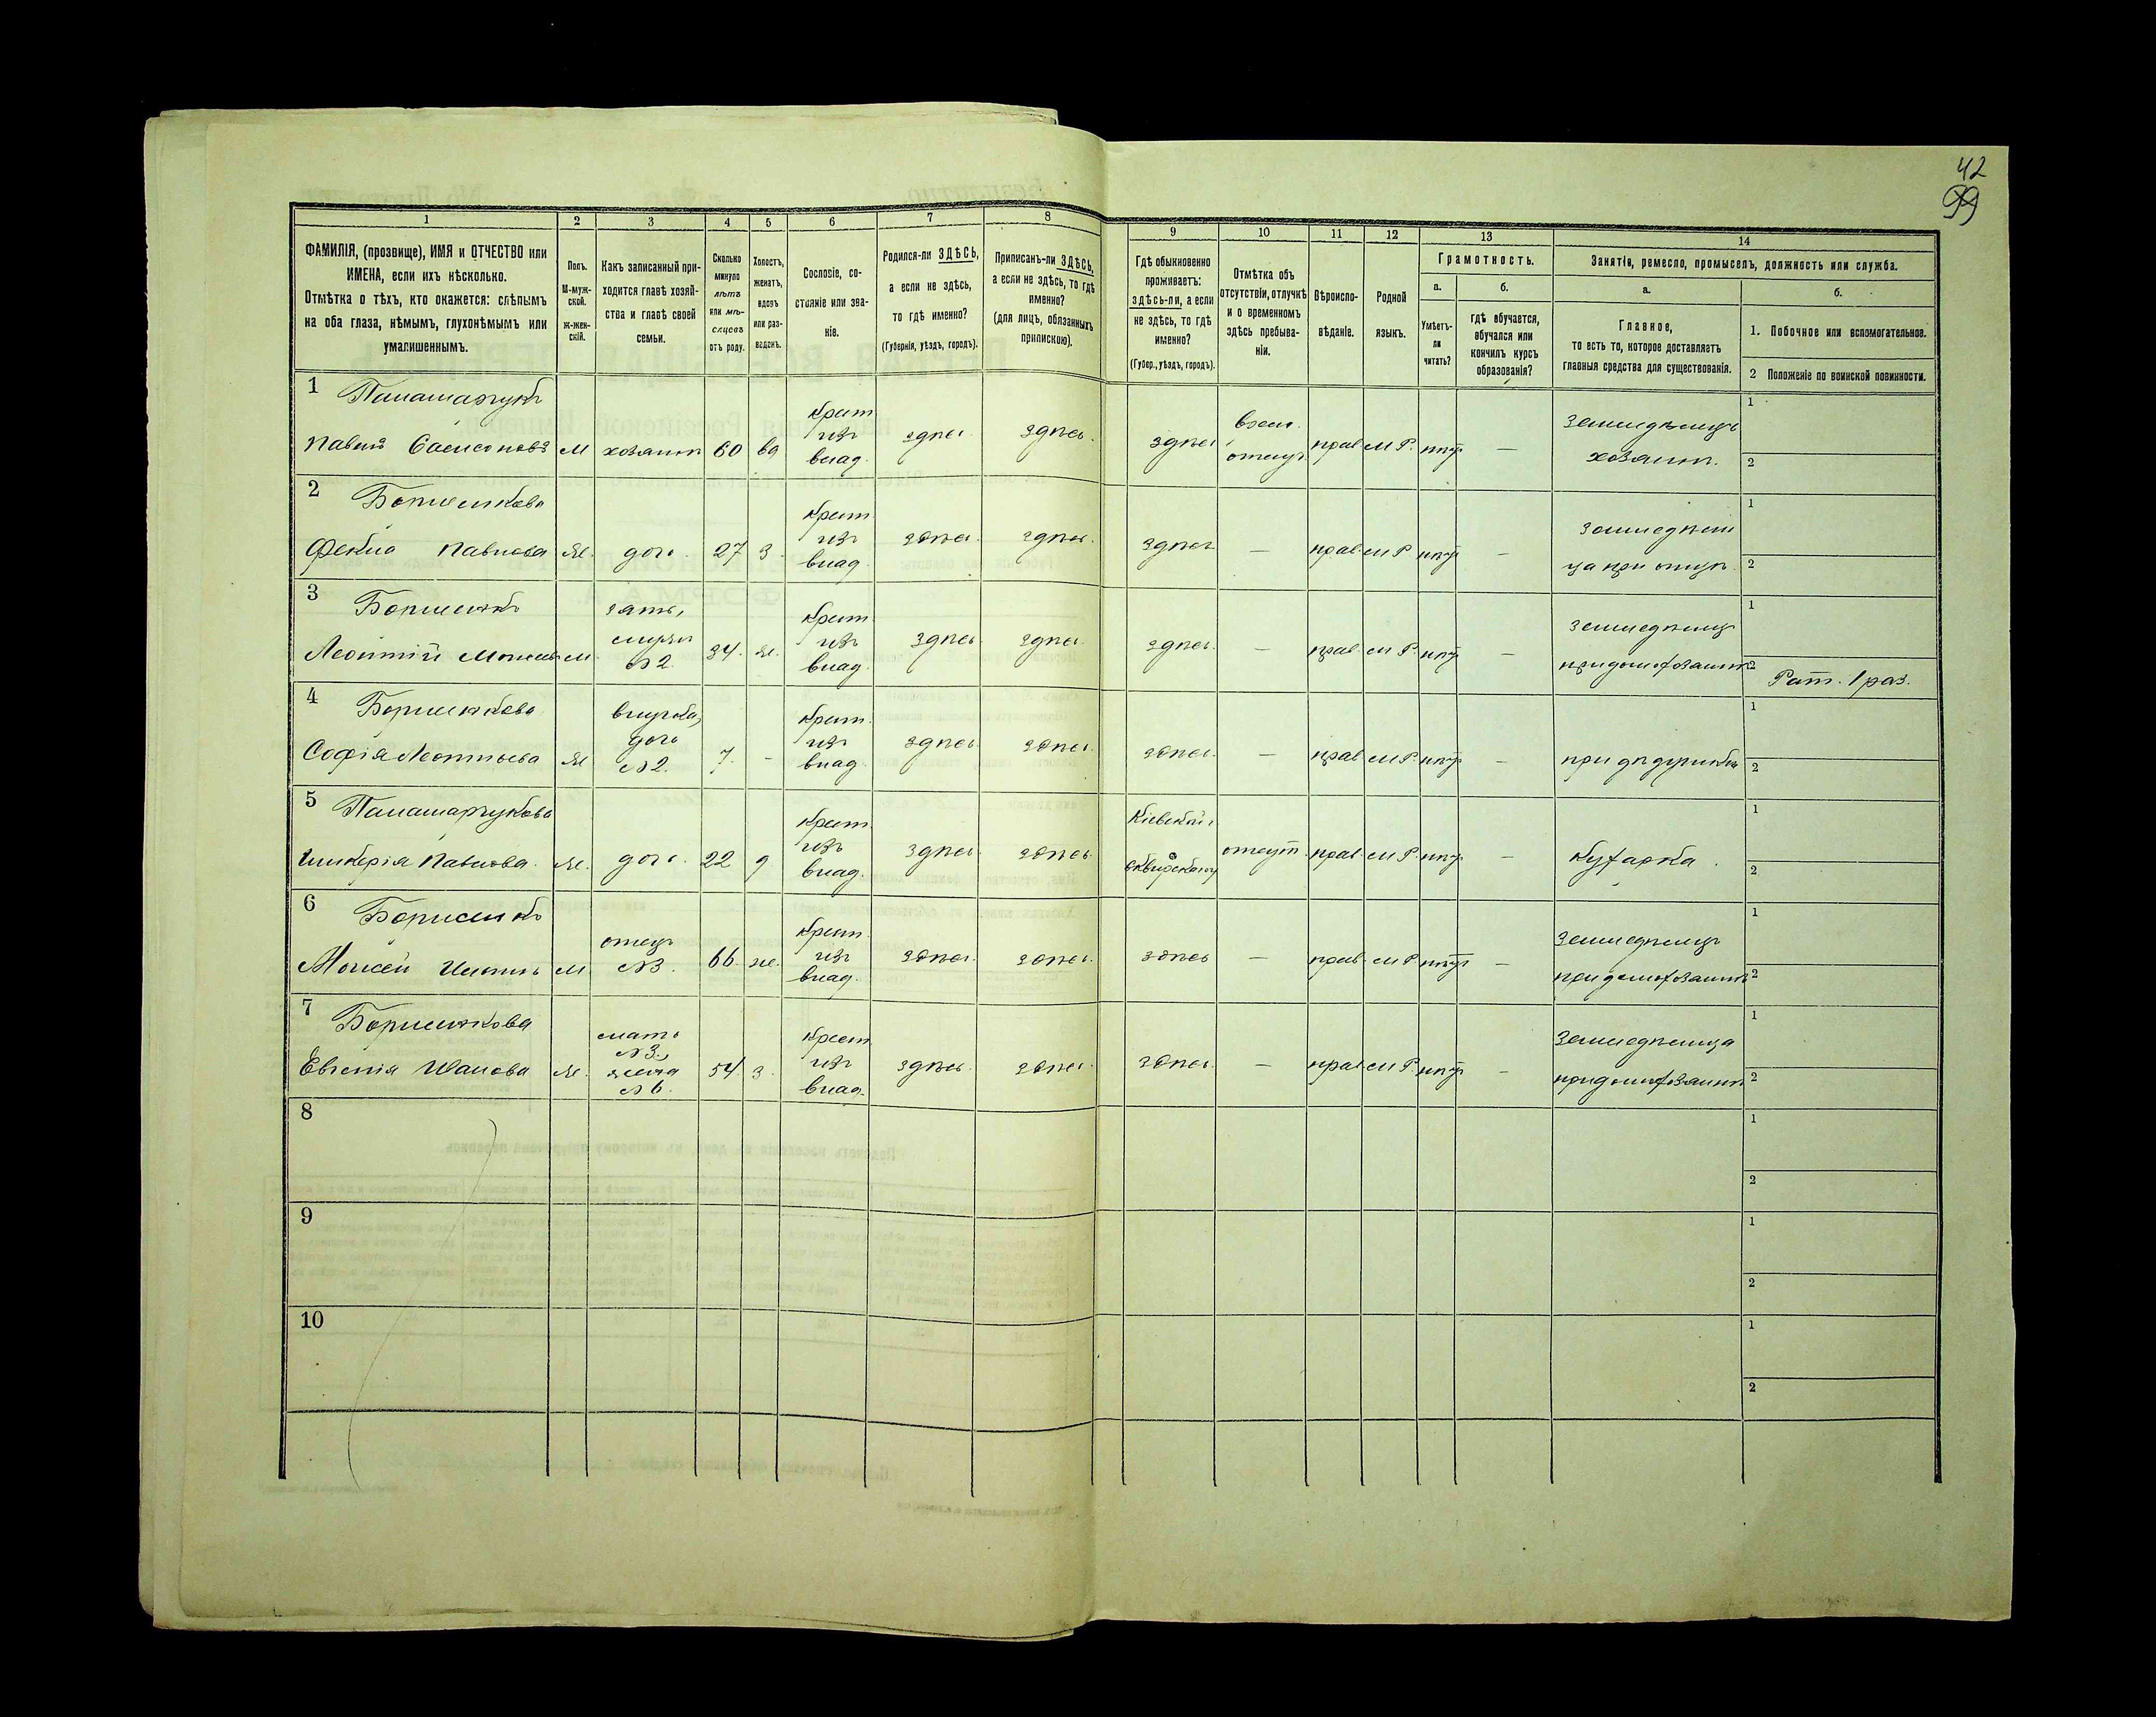 42
99
1 2 3 4 5 6 7 8 9 10 11 12 13 14
ФАМИЛІЯ, (прозвище), ИМЯ и ОТЧЕСТВО или
ИМЕНА, если ихъ нѣсколько.
Отмѣтка о тѣхъ, кто окажется: слѣпымъ
на оба глаза, нѣмымъ, глухонѣмымъ или
умалишеннымъ.
Полъ.
М-муж-
ской.
ж-жен-
скій.
Какъ записанный при-
ходится главѣ хозяй-
ства и главѣ своей
семьи.
Сколько
минуло
лѣтъ
или мѣ-
сяцевъ
отъ роду.
Холостъ,
женатъ,
вдовъ
или раз-
веденъ.
Сословіе, со-
стояніе или зва-
ніе.
Родился-ли ЗДѢСЬ,
а если не здѣсь,
то гдѣ именно?
(Губернія, уѣздъ, городъ).
Приписанъ-ли ЗДѢСЬ,
а если не здѣсь, то гдѣ
именно?
(для лицъ, обязанныхъ
припискою).
Гдѣ обыкновенно
проживаетъ:
здѣсь-ли, а если
не здѣсь, то гдѣ
именно?
(Губер., уѣздъ, городъ).
Отмѣтка объ
отсутствіи, отлучкѣ
и о временномъ
здѣсь пребыва-
ніи.
Вѣроиспо-
вѣданіе.
Родной
языкъ.
Грамотность.
а.
Умѣетъ-
ли
читать?
б.
гдѣ обучается,
обучался или
кончилъ курсъ
образованія?
Занятіе, ремесло, промыселъ, должность или служба.
а.
Главное,
то есть то, которое доставляетъ
главныя средства для существованія.
б.
1. Побочное или вспомогательное.
2 Положеніе по воинской повинности.
1
Павелъ Самсоновъ м хозяинъ 60 вд крест. изъ влад. здѣсь здѣсь здѣсь прав. м Р. нѣтъ —
земледѣлецъ
хозяинъ.
1
2
2
Павлова ж. дочь 27 з. крест. изъ влад. здѣсь здѣсь здѣсь — прав. м Р нѣтъ —
1
2
3 Борисенко
Леонтій м. зять, мужъ №2. 34. ж. крест. изъ влад. здѣсь здѣсь здѣсь — прав. м Р. нѣтъ —
земледѣлецъ
1
2 Рат. 1 раз.
4 Борисенкова
Софія Леонтьева ж внучка, дочь №2. 7. - крест. изъ влад. здѣсь здѣсь здѣсь — прав. м Р. нѣтъ —
1
2
5
Павлова. ж. дочь. 22 д крест. изъ влад. здѣсь здѣсь Кіевской прав. м Р. нѣтъ — кухарка.
1
2
6 Борисенко
Моисей м отецъ №3. 66. ж. крест. изъ влад. здѣсь здѣсь здѣсь — прав. м Р. нѣтъ —
земледѣлецъ
1
2
7 Борисенкова
Евгенія Иванова ж. мать №3., жена №6. 54. з. крест. изъ влад. здѣсь здѣсь здѣсь — прав. м Р. нѣтъ —
земледѣлица
1
2
8
1
2
9
1
2
10
1
2